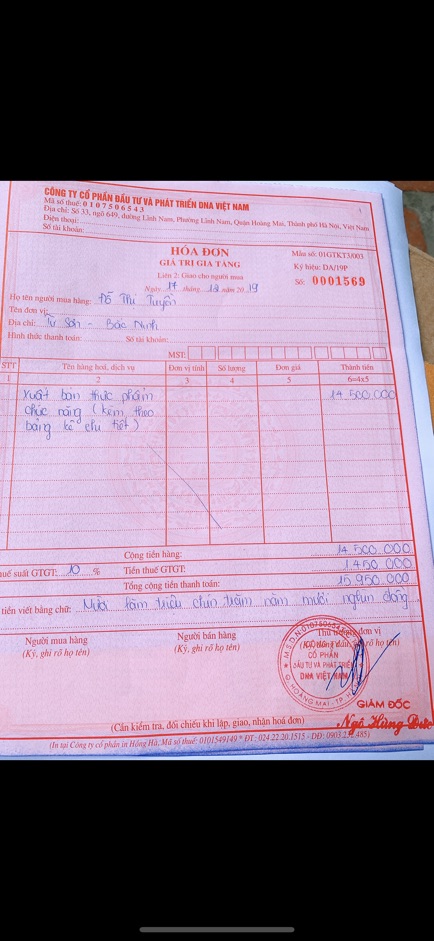 CÔNG TY CỔ PHẦN ĐẦU TƯ VÀ PHÁT TRIỂN DNA VIỆT NAM
Mã số thuế: 0107506543
Địa chỉ: Số 33, ngõ 649, đường Lĩnh Nam, Phường Lĩnh Nam, Quận Hoàng Mai, Thành phố Hà Nội, Việt Nam
Điện thoại:
Số tài khoản:
HÓA ĐƠN
GIÁ TRỊ GIA TĂNG
Liên 2: Giao cho người mua
Ngày 17 tháng 12 năm 2019
Mẫu số: 01GTKT3/003
Ký hiệu: DA/19P
Số: 0001569
Họ tên người mua hàng: Đỗ Thị Tuyển
Tên đơn vị:
Địa chỉ: Từ Sơn - Bắc Ninh
Hình thức thanh toán: Số tài khoản:
MST:
STT Tên hàng hoá, dịch vụ Đơn vị tính Số lượng Đơn giá Thành tiền
1 2 3 4 5 6=4x5
Xuất bán thực phẩm 14 500 000
chức năng (kèm theo
bảng kê chi tiết)
Cộng tiền hàng: 14 500 000
huế suất GTGT: 10 % Tiền thuế GTGT: 1 450 000
Tổng cộng tiền thanh toán: 15 950 000
tiền viết bằng chữ: Mười lăm triệu chín trăm năm mươi nghìn đồng
Người mua hàng
(Ký, ghi rõ họ tên)
Người bán hàng
(Ký, ghi rõ họ tên)
Thủ trưởng đơn vị
rõ họ tên)
CÔNG TY
CỔ PHẦN
ĐẦU TƯ VÀ PHÁT TRIỂN
DNA VIỆT NAM
Q. HOÀNG MAI - TP. HÀ
GIÁM ĐỐC
Ngô Hùng Đức
(Cần kiểm tra, đối chiếu khi lập, giao, nhận hoá đơn)
(In tại Công ty cổ phần in Hồng Hà, Mã số thuế: 0101549149 * ĐT: 024.22.20.1515 - DĐ: